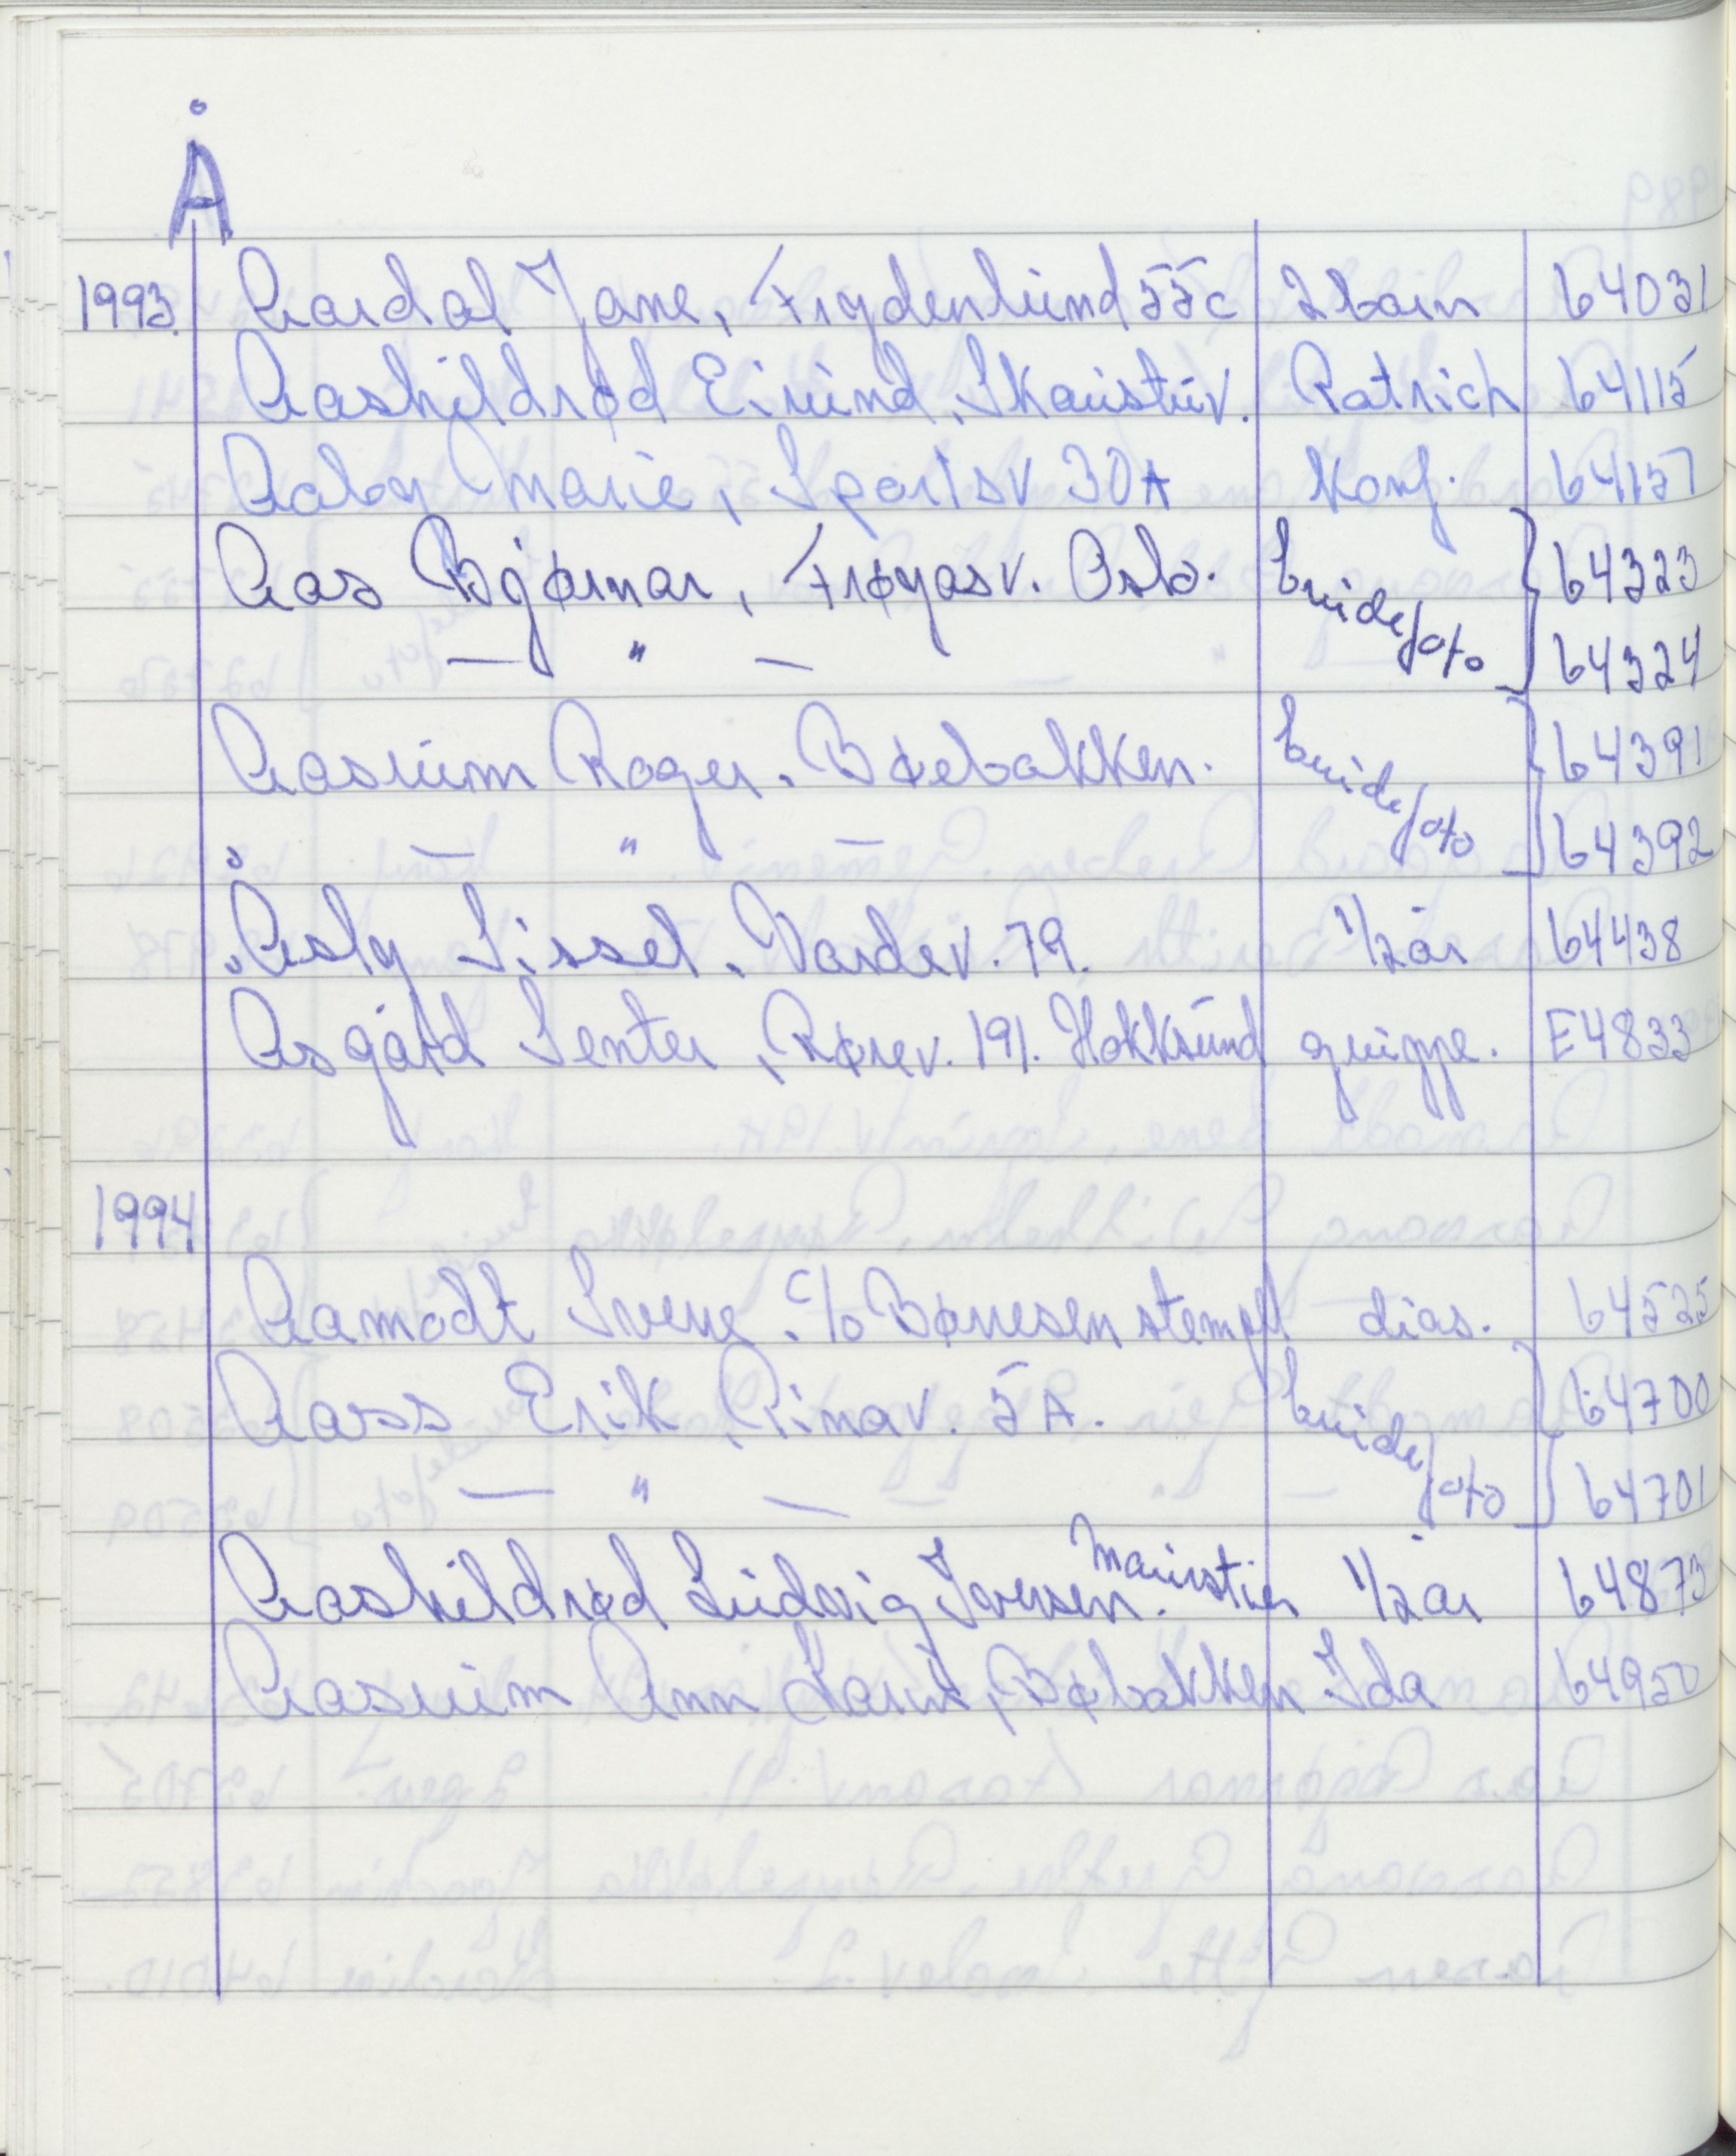 Å
1993. Aardal Jane, Frydenlund 55c 2 barn 64031
Aaskildrød Eirund, Skaustuv. Patrich 64115
Aaby Marie, Sportsv 30A Konf. 64137
Aas Bjørnar, Frøyasv. Oslo. brude/foto 64323
— " — 64324
Aasrum Roger, Bøebakken. brude/foto 64391
— " — 64392
Åsly Sissel, Vardev. 79. 1/2 år 64438
Åsgård Senter, Rørev. 191. Hokksund gruppe. E4833
1994
Aamodt Svene. c/o Børresen stempel dias. 64525
Aass Erik, Rimav. 5A. brude/foto 64700
— " — 64701
Aaskildrød Ludvig Iversen. Maurstien 1/2 år 64873
Aasrum Ann Karin, Bøbakken Ida 64950